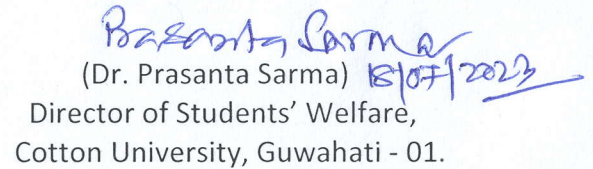 Prasanta Sarma
(Dr. Prasanta Sarma) 18/07/2023
Director of Students’ Welfare,
Cotton University, Guwahati - 01.